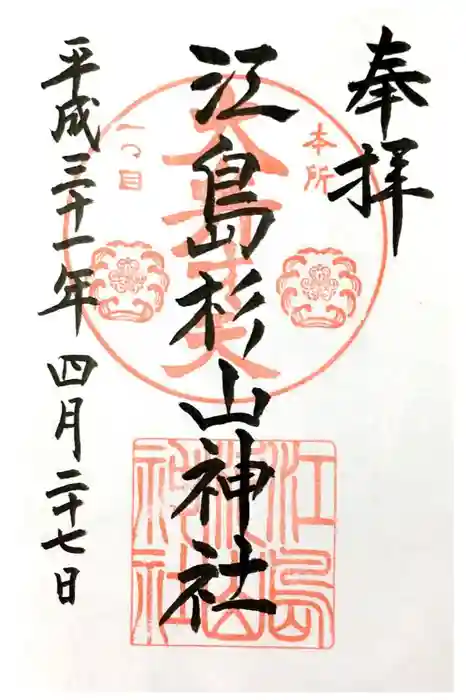 奉拝
本所
一つ目
江島杉山神社
平成三十一年四月二十七日
江島
杉山
神社